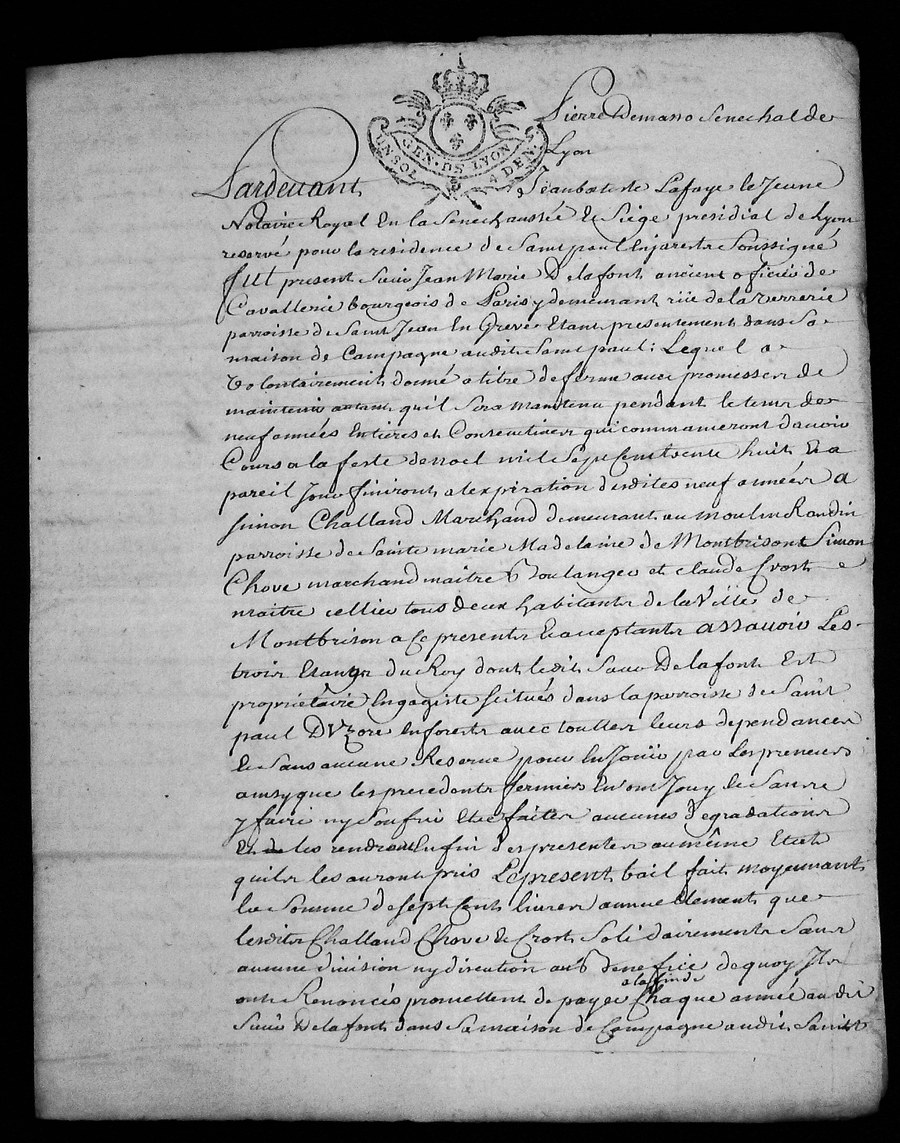 GEN. DS LYON
UN SOL
4 DEN.
Pierre Demasso Senechal de
Lyon
Pardeuant Jeanbatiste Lafaye le Jeune
Notaire Royal En la Senechaussée & Siège presidial de Lyon
reservé pour la residence de Saint paul Enjarest Soussigné
fut present Sieur Jean Marie Delafont ancien oficié de
Cavallerie bourgeois de Paris y demeurant rüe de la verrerie
parroisse de Saint Jean En Greve Etant presentement dans Sa
maison de Campagne audit Saint paul; Lequel a
volontairement donné a titre de ferme avec promesses de
maintenir autant qu'il Sera maintenu pendant le tems de
neuf années Entieres et Consecutives qui commanceront d'avoir
Cours a la feste de noel mil Sept Cent trente huit & a
pareil Jour finiront a lexpiration desdites neuf années a
Simon Challand Marchand demeurant au moulin Randin
parroisse de Sainte marie Madelaine de Montbrison Simon
Chove marchand maitre Boulanger et claude Crost
maitre cellier tous deux habitants de la Ville de
Montbrison a Ce presents & acceptants assavoir Les
trois Etangs du Roy dont ledit Sieur Delafont Est
propriétaire Engagiste Scitués dans la parroisse de Saint
paul DUzore En forest avec touttes leurs dependances
& Sans aucune Reserve pour En Joüir par Les preneurs
ainsy que les precedents fermiers En ont Jouy & Sans
y faire ny Soufrir Etre faites aucunes degradations
Et les rendre Enfin des presentes au même Etat
quils les auront pris Le present bail fait moyennant
la Somme de Sept Cent livres annuellement que
lesdits Challand Chove & Crost Solidairement Sans
aucune division ny discution au Benefice de quoy Ils
ont Renoncés promettent de payer a la fin de Chaque année audit
Sieur Delafont dans Sa maison de Campagne audit Saint